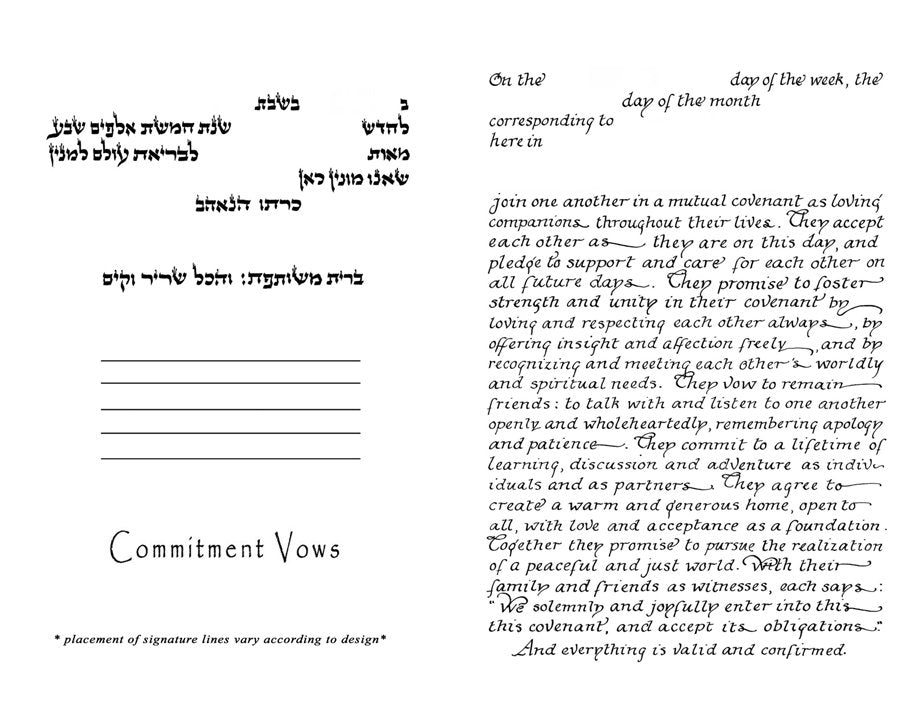 ב בשבת
לחדש שנת חמשת אלפים שבע
מאות לבריאת עולם למנין
שאנו מונין כאן
כרתו הנאהב
ברית משותפת: והכל שריר וקים
Commitment Vows
* placement of signature lines vary according to design*
On the day of the week, the
day of the month
corresponding to
here in
join one another in a mutual covenant as loving
companions throughout their lives. They accept
each other as they are on this day, and
pledge to support and care for each other on
all future days. They promise to foster
strength and unity in their covenant by
loving and respecting each other always, by
offering insight and affection freely, and by
recognizing and meeting each other's worldly
and spiritual needs. They vow to remain
friends: to talk with and listen to one another
openly and wholeheartedly, remembering apology
and patience. They commit to a lifetime of
learning, discussion and adventure as indiv-
iduals and as partners. They agree to
create a warm and generous home, open to
all, with love and acceptance as a foundation.
Together they promise to pursue the realization
of a peaceful and just world. With their
family and friends as witnesses, each says:
"We solemnly and joyfully enter into this
this covenant, and accept its obligations."
And everything is valid and confirmed.